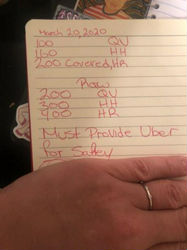 March 20, 2020
100 QV
160 HH
200 Covered, HR
Raw
200 QV
300 HH
400 HR
Must Provide Uber
for Safety